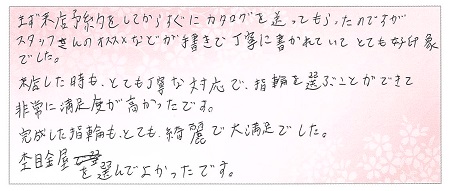 まず来店予約をしてからすぐにカタログを送ってもらったのですが
スタッフさんのオススメなどが手書きで丁寧に書かれていてとても好印象
でした。
来店した時も、とても丁寧な対応で、指輪を選ぶことができて
非常に満足度が高かったです。
完成した指輪も、とても、綺麗で大満足でした。
杢目金屋
を選んでよかったです。